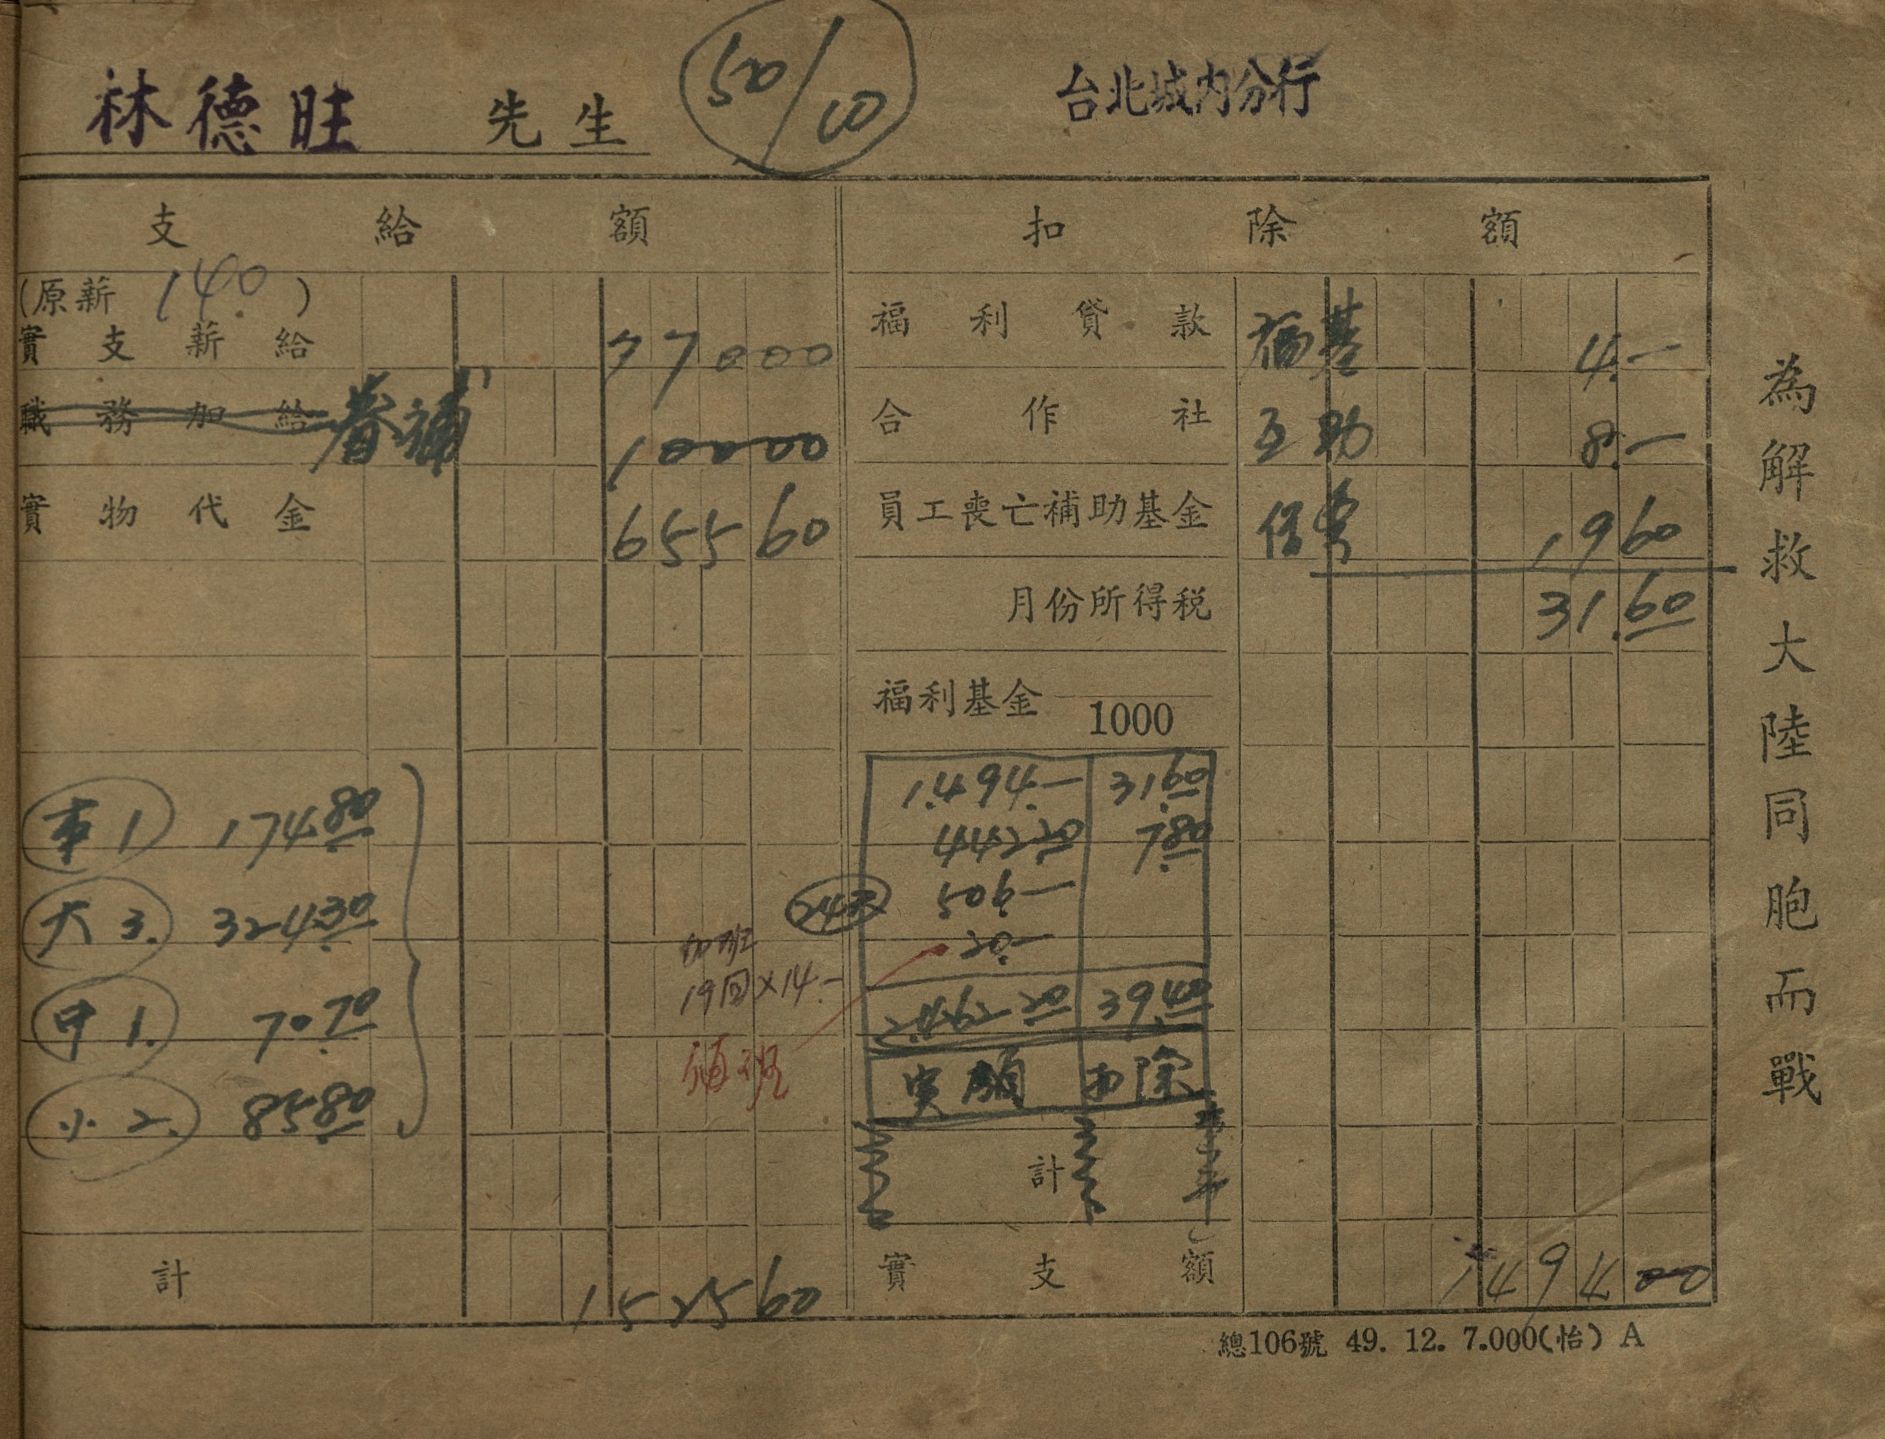 林德旺 先生 50/10 台北城内分行
支給額
扣除額
(原薪 140)
實支薪給 77000
職務加給 眷補 10000
實物代金 65560
車1 17480
大3. 32430
中1. 7070
小2. 8580
計 152560
福利貸款 福基 4.—
合作社 互助 8.—
員工喪亡補助基金 1960
31.60
月份所得税
福利基金 1000
1.494.— 31.60
442.20 7.80
506—
20.—
2.462.20 39.40
実領 扣除
加班
19回×14.—
計
實支額 149400
總106號 49. 12. 7.000(怡) A
為解救大陸同胞而戰